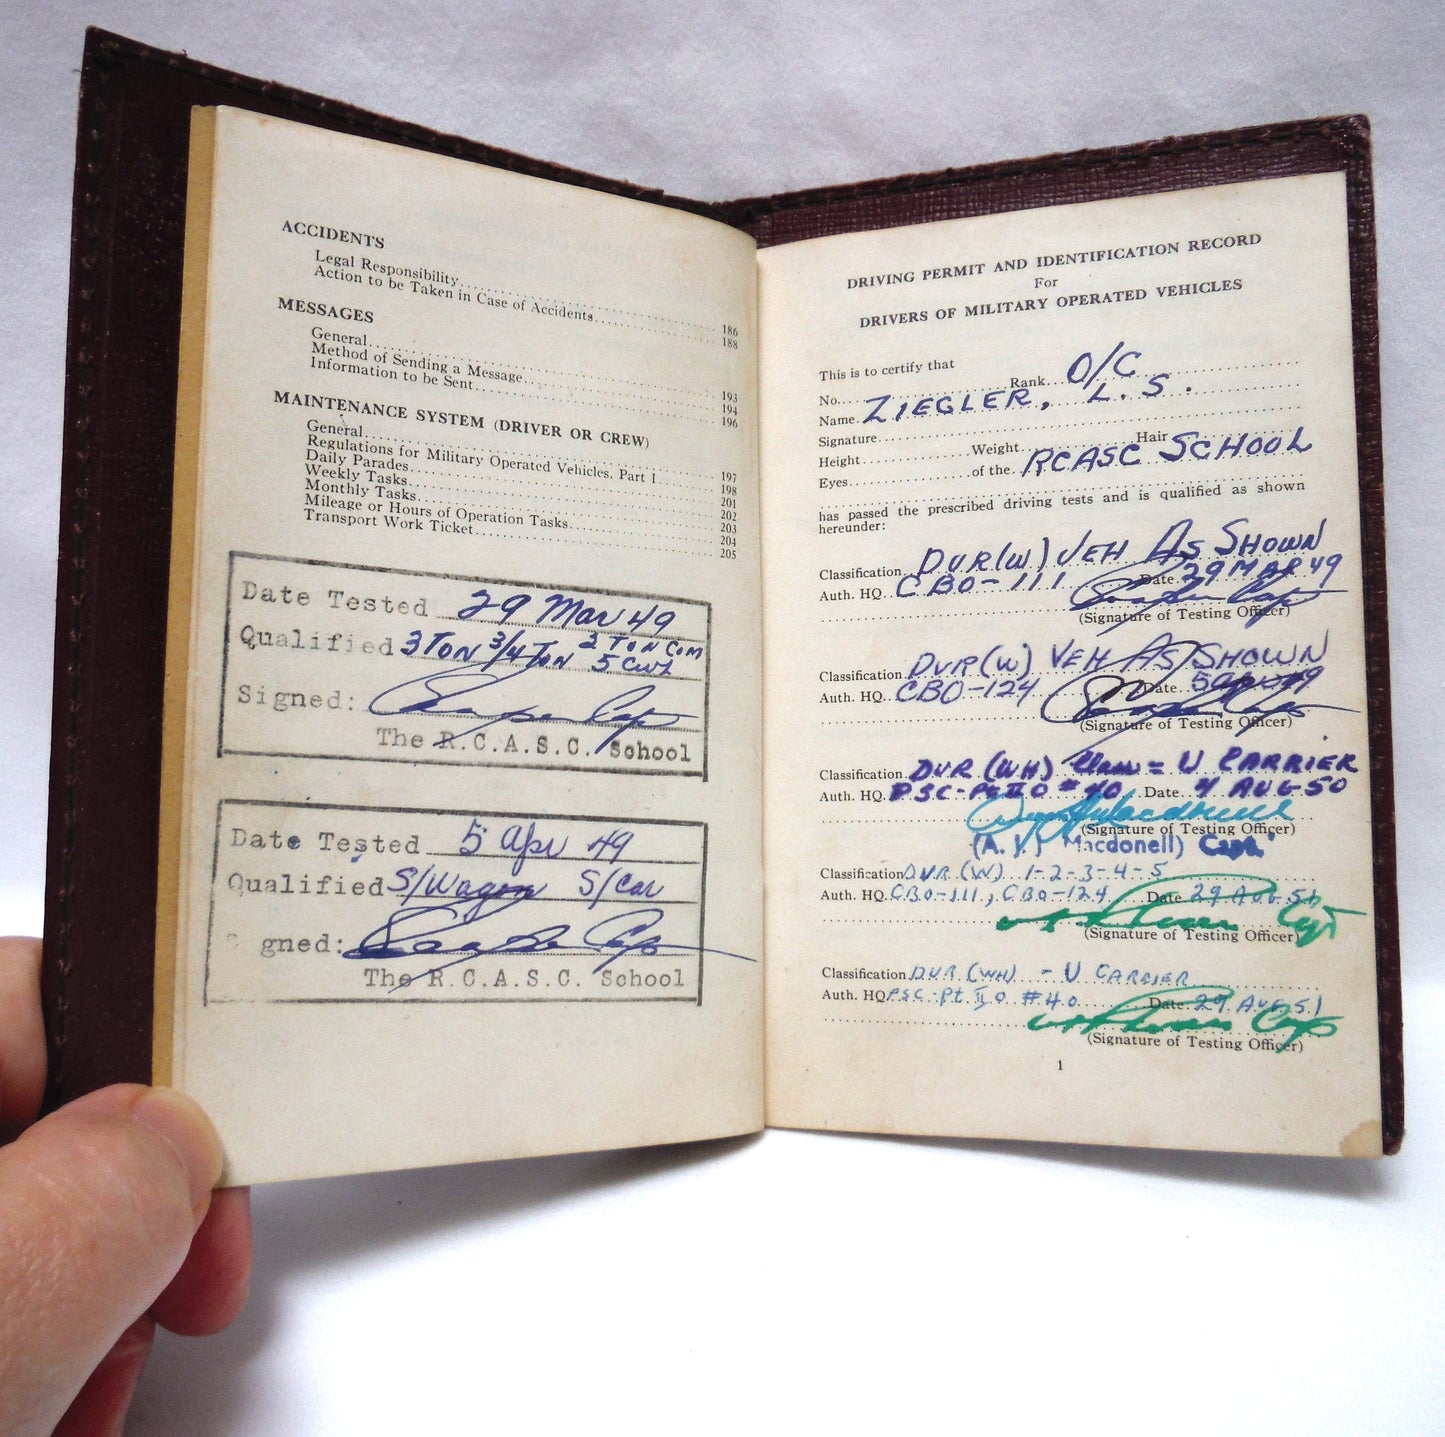 ACCIDENTS
Legal Responsibility 186
Action to be Taken in Case of Accidents 188
MESSAGES
General 193
Method of Sending a Message 194
Information to be Sent 196
MAINTENANCE SYSTEM (DRIVER OR CREW)
General 197
Regulations for Military Operated Vehicles. Part I 198
Daily Parades 201
Weekly Tasks 202
Monthly Tasks 203
Mileage or Hours of Operation Tasks 204
Transport Work Ticket 205
Date Tested 29 Mar 49
Qualified 3 TON 3/4 TON 2 TON COM
5 CWT
Signed:
The R.C.A.S.C. School
Date Tested 5 Apr 49
Qualified S/Wagon S/Car
Signed:
The R.C.A.S.C. School
DRIVING PERMIT AND IDENTIFICATION RECORD
For
DRIVERS OF MILITARY OPERATED VEHICLES
This is to certify that
No. Rank O/C
Name ZIEGLER, L. S.
Signature
Height Weight Hair
Eyes of the RCASC SCHOOL
has passed the prescribed driving tests and is qualified as shown
hereunder:
Classification DVR (W) VEH AS SHOWN
Auth. HQ. CBO-111 Date 29 MAR 49
(Signature of Testing Officer)
Classification DVR (W) VEH AS SHOWN
Auth. HQ. CBO-124 Date 5 Apr 49
(Signature of Testing Officer)
Classification DVR (WH) = U CARRIER
Auth. HQ. PSC-Pt II O #40 Date 4 AUG 50
(Signature of Testing Officer)
(A. J. Macdonell) Capt.
Classification DVR (W) 1-2-3-4-5
Auth. HQ. CBO-111, CBO-124 Date 29 AUG 51
Capt
(Signature of Testing Officer)
Classification DVR (WH) - U CARRIER
Auth. HQ. PSC-Pt II O #40 Date 29 AUG 51
Capt
(Signature of Testing Officer)
1